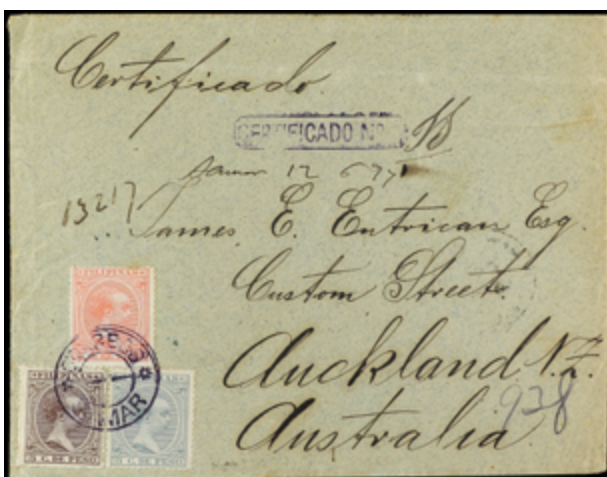 Certificado.
CERTIFICADO Nº
13217
James E. Entrican Esq.
Custom Street.
Auckland N.Z.
Australia
938
FILIPINAS
MAR